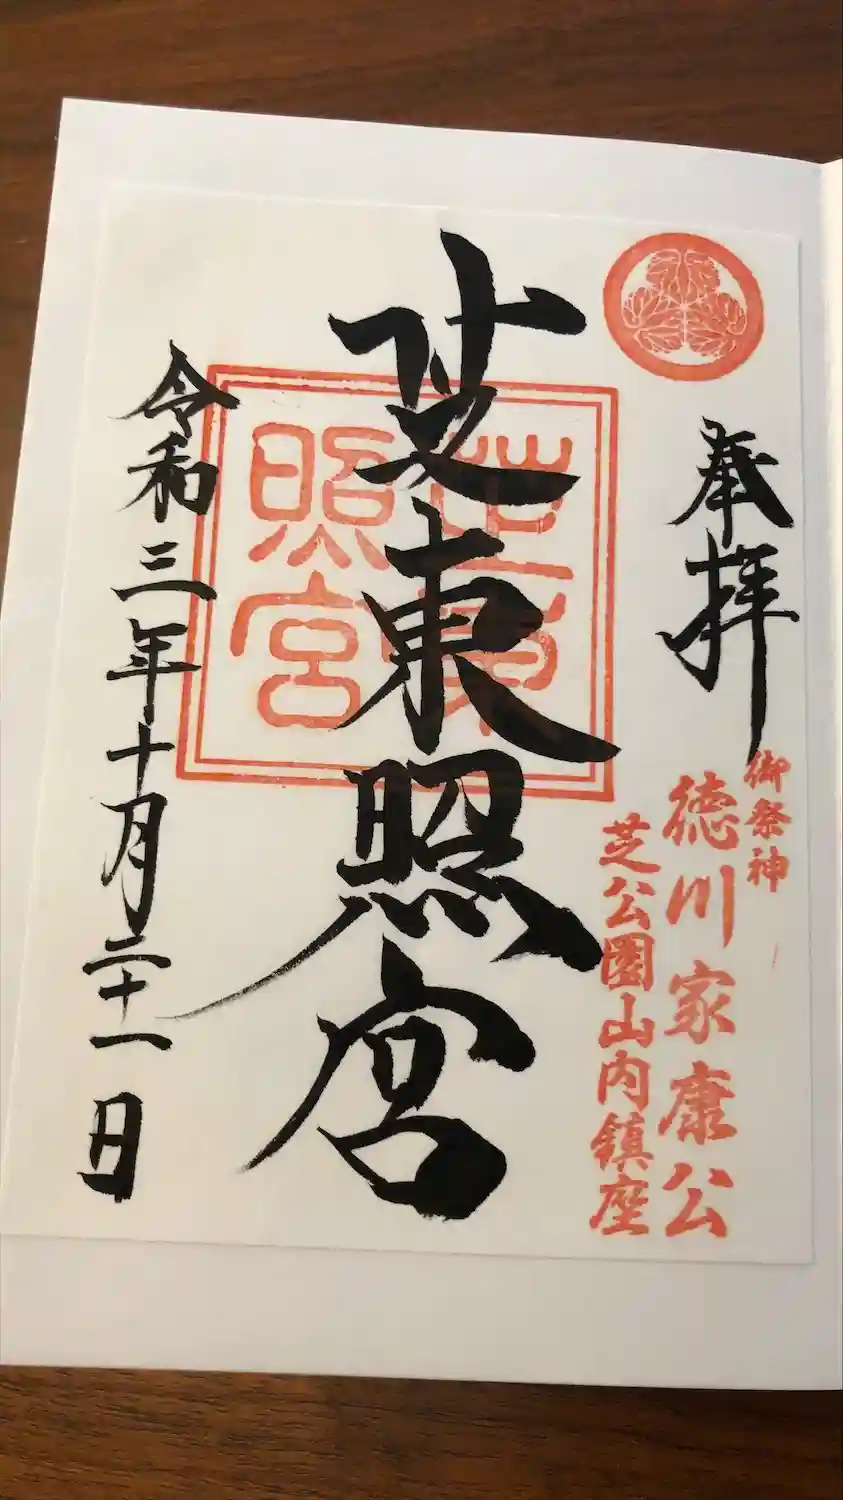 奉拝
御祭神
徳川家康公
芝公園山内鎮座
芝東照宮
芝東
照宮
令和三年十月二十一日